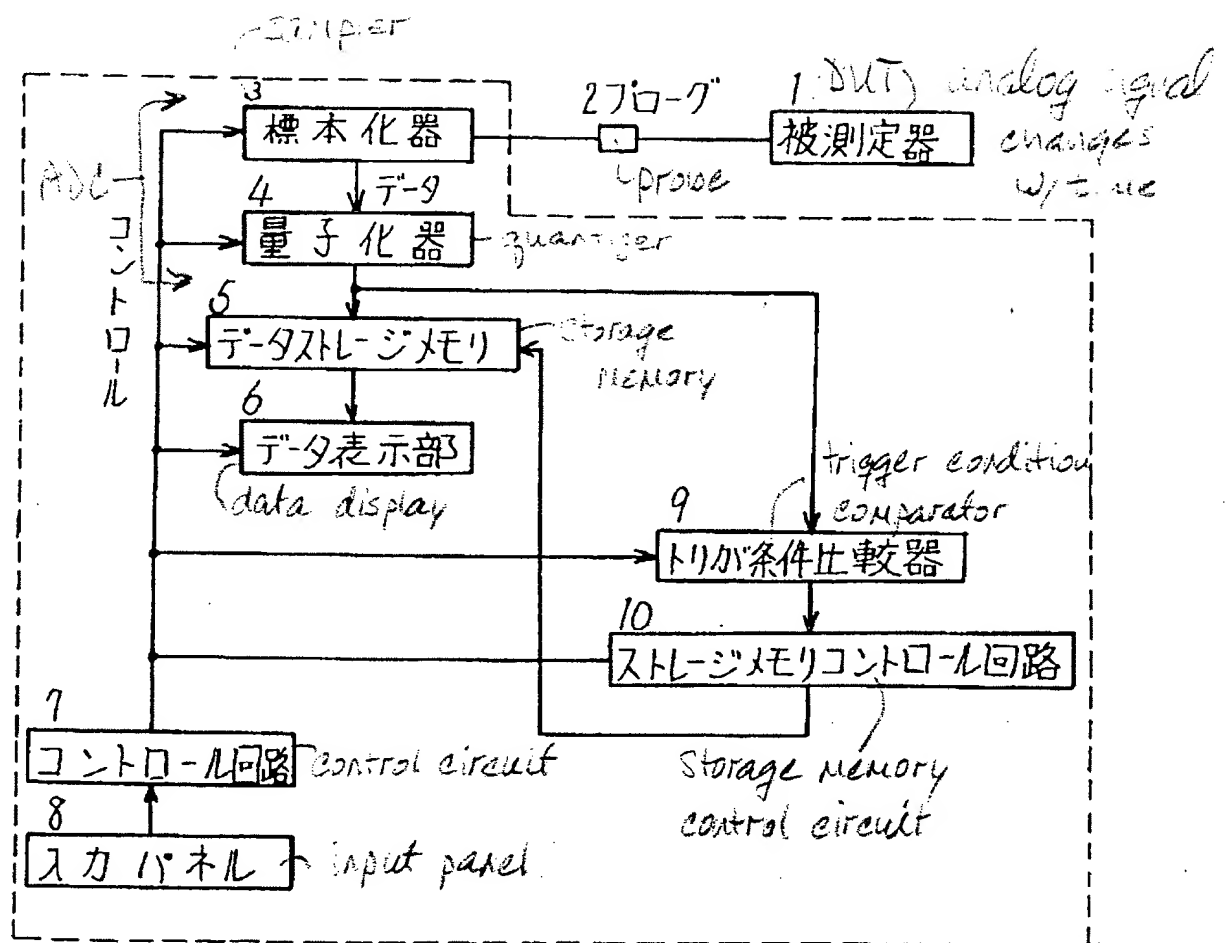 sampler
3
標本化器
2プローグ
probe
1
(DUT) analog signal
changes
w/ time
被測定器
ADC
コントロール
データ
4
量子化器
quantizer
5
データストレージメモリ
storage
memory
6
データ表示部
data display
trigger condition
comparator
9
トリガ条件比較器
10
ストレージメモリコントロール回路
7
コントロール回路
control circuit
storage memory
control circuit
8
入力パネル
input panel